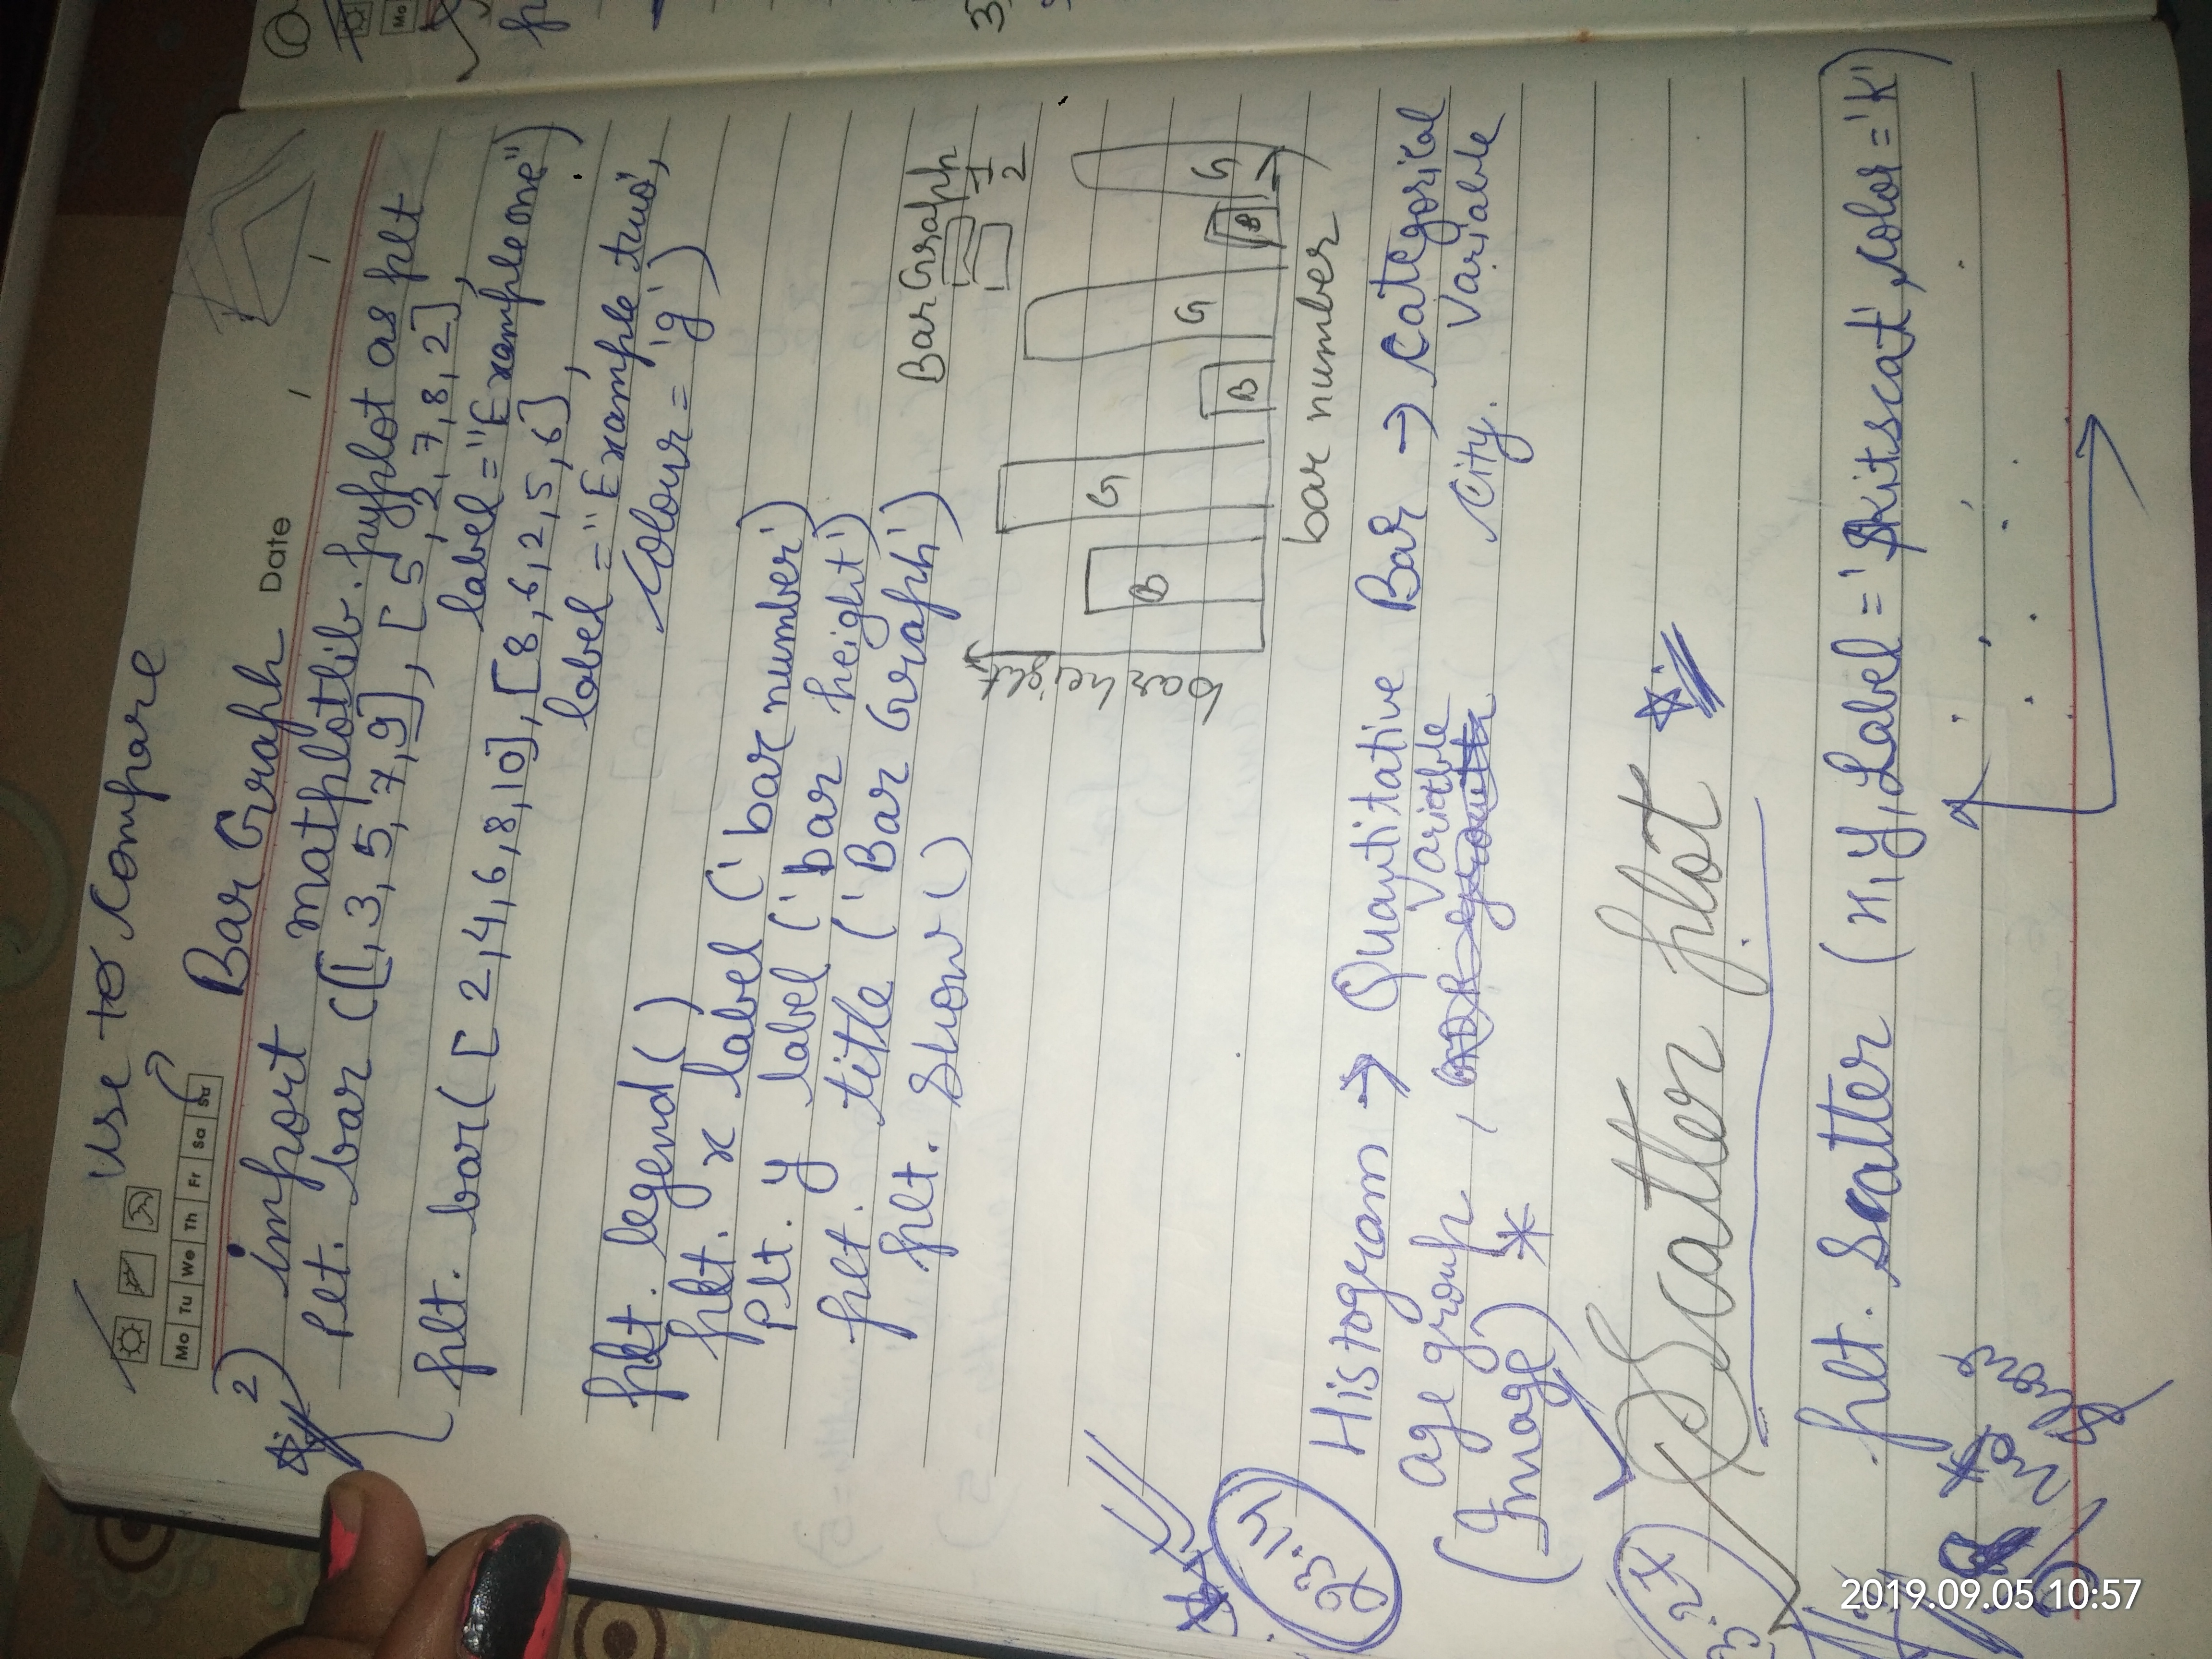 Use to compare
Mo Tu We Th Fr Sa Su
Date
Bar Graph
2) import matplotlib.pyplot as plt
plt. bar ([1,3,5,7,9], [5,2,7,8,2],
label="Example one")
plt. bar([2,4,6,8,10],[8,6,2,5,6],
label="Example two',
colour='g')
plt. legend()
plt. x label ('bar number')
plt. y label ('bar height')
plt. title ('Bar Graph')
plt. show()
Bar Graph
1
2
bar height
B G B G B G
bar number
23.14
Histogram → Quantitative Variable
age group,
(Image) *
Bar → Categorical Variable
City.
Scatter plot
3.27
plt. Scatter (x,y,Label='skitscat',color='k')
2019.09.05 10:57